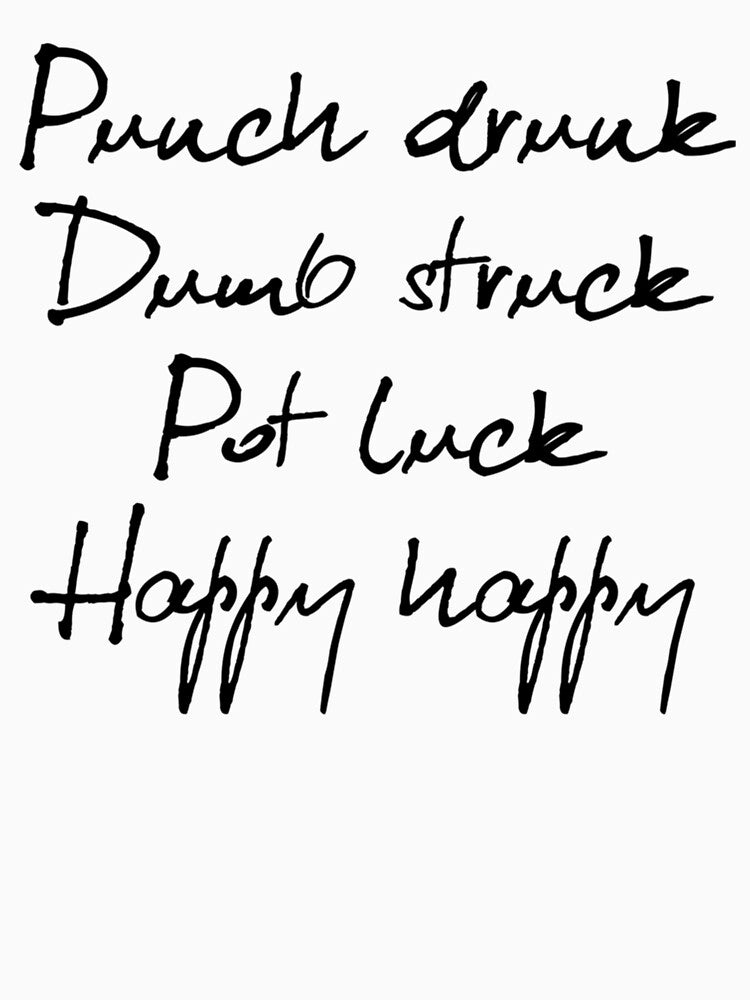 Punch drunk
Dumb struck
Pot luck
Happy happy